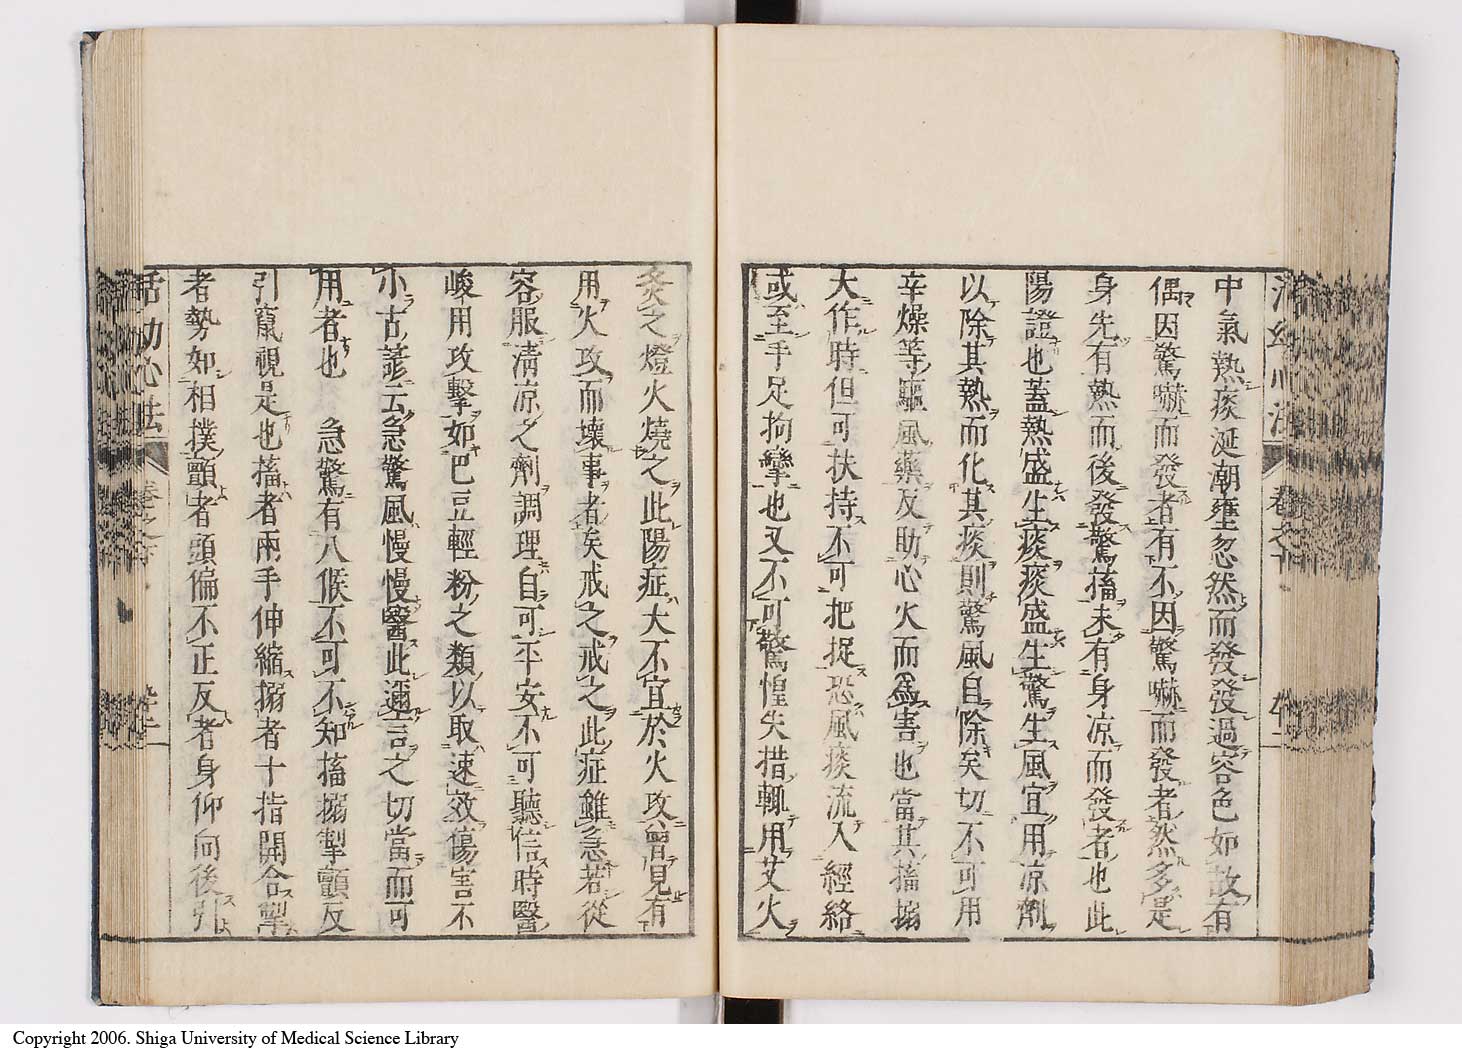 中氣熱痰涎潮壅忽然而發發過容色如故有
偶因驚嚇而發者有不因驚嚇而發者然多是
身先有熱而後發驚搐未有身凉而發者也此
陽證也蓋熱盛生痰痰盛生驚生風宜用凉劑
以除其熱而化其痰則驚風自除矣切不可用
辛燥等驅風藥反助心火而爲害也當其搐搦
大作時但可扶持不可把捉恐風痰流入經絡
或至手足拘攣也又不可驚惶失措輒用艾火
灸之燈火燒之此陽症大不宜於火攻曾見有
用火攻而壞事者矣戒之戒之此症雖急若從
容服清凉之劑調理自可平安不可聽信時醫
峻用攻擊如巴豆輕粉之類以取速效傷害不
小古諺云急驚風慢慢醫此邇言之切當而可
用者也　急驚有八候不可不知搐搦掣顫反
引竄視是也搐者兩手伸縮搦者十指開合掣
者勢如相撲顫者頭偏不正反者身仰向後引
活幼心法　卷之下
Copyright 2006. Shiga University of Medical Science Library